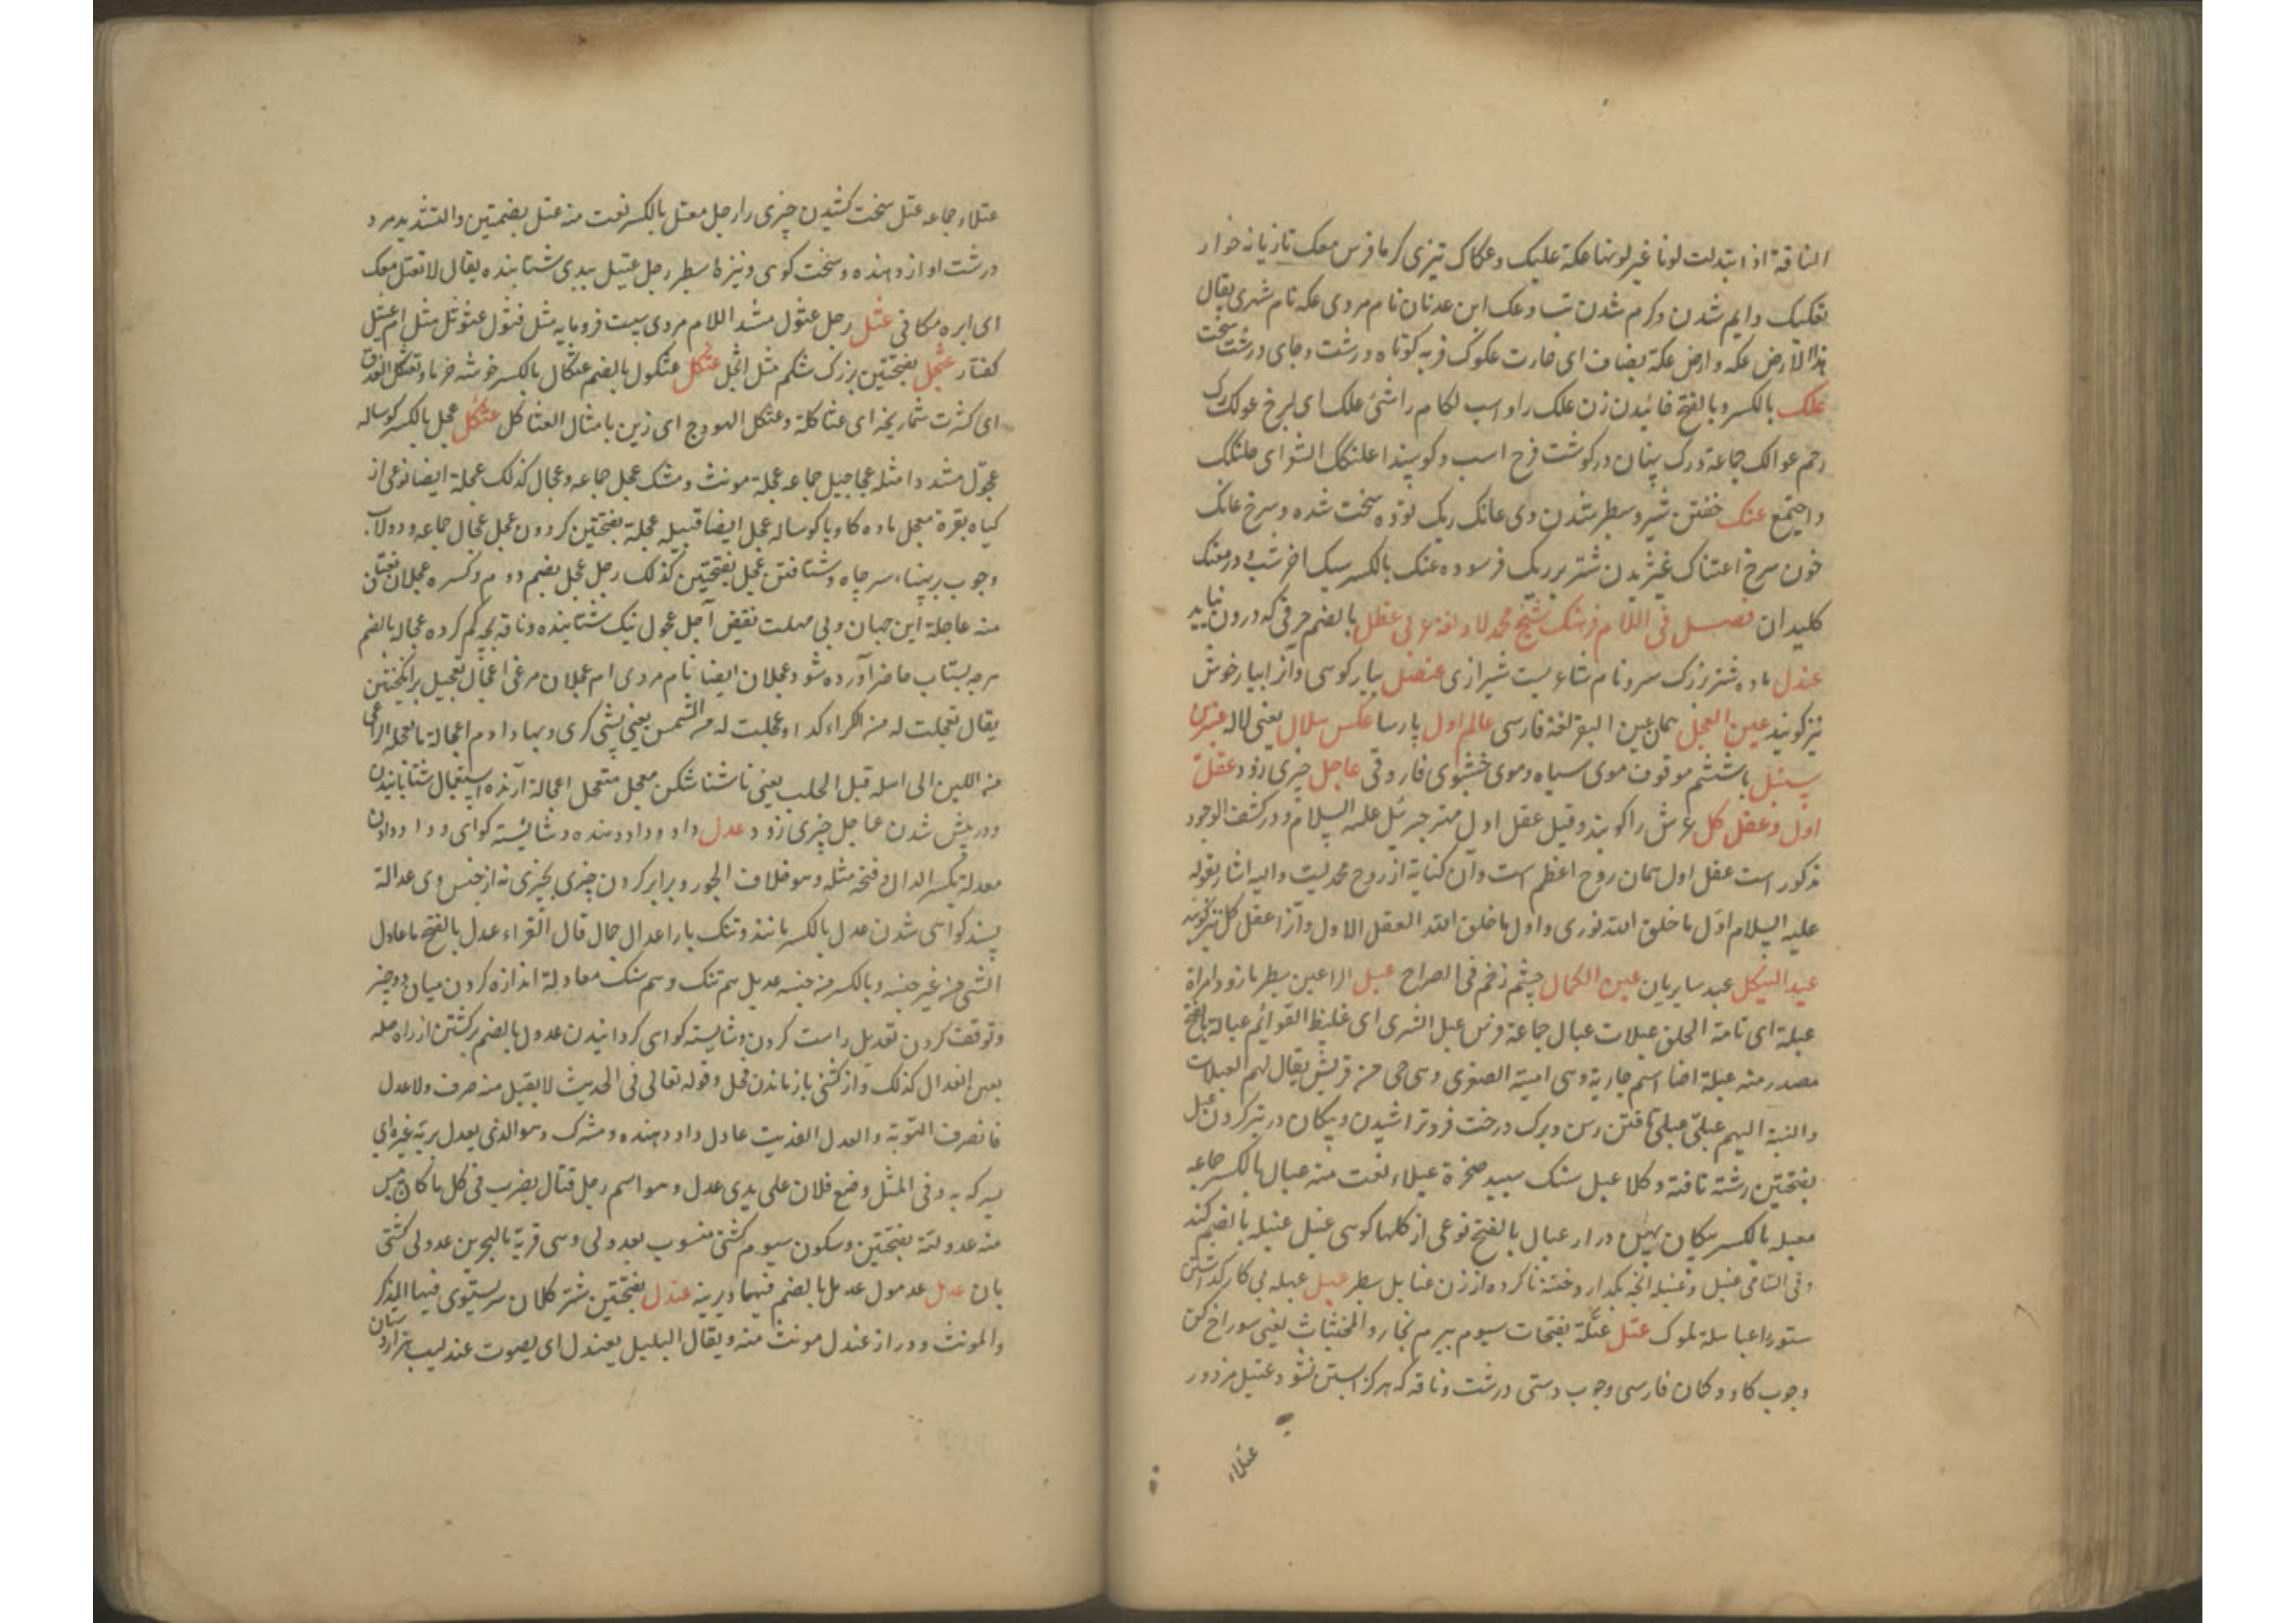 الناقة اذا ابتدلت لونا غیر لونها عکة علیک و عکاک تیزی کرما فرس معک تازیانه خوار
تعکیک دایم شدن و کرم شدن تب و عک ابن عدنان نام مردی عکه نام شهری یقال
هذا الارض عکه و ارض عکة یضاف ای حارت عکوک فربه کوتاه درشت و جای درشت سخت
علک بالکسر و بالفتح خائیدن زن علک را و اسب لکام را شئ علک ای لزج عولک رک
رحم عوالک جماعة و رک پنهان در کوشت فرج اسب و کوسپند اعلنکک الشو ای
و اجتمع عنک خفتن شیر و سطبر شدن وی عانک ریک توده سخت شده و سرخ عانک
خون سرخ اعتناک غیژیدن شتر بر ریک فرسوده عنک بالکسر سیک اخر شب و در معنک
کلیدان فصل فی اللام فرهنک شیخ محمد لاد لغة عربی عطل بالضم حرفی که درون نیاید
عندل ماده شتر بزرک سر و نام شاعریست شیرازی عنصل پیاز کوهی و آنرا پیاز خوش
نیز کویند عین العجل همان عین البقر لغة فارسی عالم اول پارسا عکس سلال یعنی لاله عنبرین
سنبل با ششم موقوف موی سیاه و موی خشبوی فاروقی عاجل چیزی زود عقل
اول و عقل کل عرش را کویند و قیل عقل اول مهتر جبرئیل علیه السلام و در کشف الوجود
مذکور است عقل اول همان روح اعظم است و آن کنایة از روح محمدیست و الیه اشار بقوله
علیه السلام اول ما خلق الله نوری و اول ما خلق الله العقل الاول و آنرا عقل کل نیز کویند
عید الهیکل عید سایریان عین الکمال چشم زخم فی الصراح عبل الراعین سطبر بازو و امراة
عبلة ای تامة الخلق عبلات عبال جماعة فرس عبل الشوی ای غلیظ القوائم عبالة بالفتح
مصدر منه عبلة ایضا اسم جاریة و هی امیة الصغری و هی حی من قریش یقال لهم العبلات
و النسبة الیهم عبلی عبل تافتن رسن و برک درخت فرو تراشیدن و پیکان در تیر کردن عبل
بفتحتین رشته تافته و کلا عبل سنک سپید صخرة عبلاء نعت منه عبال بالکسر جماعه
معبله بالکسر پیکان پهن دراز عبال بالفتح نوعی از کلها کوهی عنبل عنبله بالضم کند
و فی السامی عنبل و عنبله انچه بکدارد ختنه ناکرده از زن عنابل سطبر عبهل عبهله بی کار کذاشتن
ستور را عباهلة ملوک عتل عتلة بفتحات سیوم بیرم نجار و المخنثات یعنی سوراخ کن
و چوب کاو و کمان فارسی و چوب دستی درشت و ناقه که هرکز ابستن نشود عتیل مزدور
عتلاء
عتلاء جماعه عتل سخت کشیدن چیزی را رجل معتل بالکسر نعت منه عتل بضمتین و التشدید مرد
درشت اواز دهنده و سخت کوی و نیزهٔ سطبر رجل عتیل ببدی شتابنده یقال لا تعتل معک
ای ابره مکافی عثل رجل عثول مشدد اللام مردی سست فرومایه مثل قثول عثوثل مثل ام عثیل
کفتار عثجل بفتحتین بزرک شکم مثل اثجل عثکل عثکول بالضم عثکال بالکسر خوشه خرما و تعثکل العذق
ای کثرت شماریخه ای عثاکلة و عثکل الهودج ای زین بامثال العثاکل عثکل عجل بالکسر کوساله
عجول مشدد امثله عجاجیل جماعه عجلة مونث و مشک عجل جماعه و عجال کذلک عجلة ایضا نوعی از
کیاه بقرة معجل ماده کاو با کوساله عجل ایضا قبیله عجلة بفتحتین کردون عجل عجال جماعه و دولاب
و چوب بر پهناء سر چاه و شتافتن عجل بفتحتین کذلک رجل عجل بضم دوم و کسره عجلان نعتان
منه عاجلة این جهان و بی مهلت نقیض آجل عجول نیک شتابنده و ناقه بچه کم کرده عجاله بالضم
هرچه بشتاب حاضر آورده شود عجلان ایضا نام مردی ام عجلان مرغی اعجال تعجیل برانکیختن
یقال تعجلت له من الکراء کذا و عجلت له من الثمن یعنی پیشی کری و بها دادم اعجالة ما یعجله الراعی
من اللبن الی اهله قبل الحلب یعنی ناشتا شکن معجل متعجل اعجالة آرنده استعجال شتابانیدن
و در پیش شدن عاجل چیزی زود عدل داد و داد دهنده و شایسته کواهی و داد دادن
معدلة بکسر الدال و فتحه مثله و هو خلاف الجور و برابر کردن چیزی بچیزی نه از جنس وی عدالة
پسند کواهی شدن عدل بالکسر مانند و تنک بار اعدال جمال قال الفراء عدل بالفتح ما عادل
الشی من غیر جنسه و بالکسر من جنسه عدیل هم تنک و هم سنک معادلة اندازه کردن میان دو چیز
و توقف کردن تعدیل راست کردن و شایسته کواهی کردانیدن عدول بالضم برکشتن از راه صله
بعن انعدال کذلک و از کشنی باز ماندن فحل و قوله تعالی فی الحدیث لا یقبل منه صرف و لا عدل
فالصرف التوبة و العدل الفدیت عادل داد دهنده و مشرک و هو الذی یعدل بربه غیره ای
یشرک به و فی المثل وضع فلان علی یدی عدل و هو اسم رجل قتال یضرب فی کل ما کان یئس
منه عدولیة بفتحتین و سکون سیوم کشتی منسوب بعدولی و هی قریة بالبحرین عدولی کشتی
بان عدمل عدمول عدملی بالضم فیهما دیرینه عندل بفتحتین شتر کلان سر یستوی فیها المذکر
و المونث و دراز عندل مونث منه و یقال البلبل یعندل ای یصوت عندلیب هزاردستان